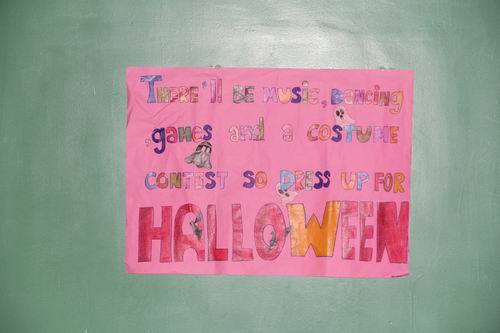 There'll be music, Dancing
,games and a costume
contest so Dress up for
HALLOWEEN